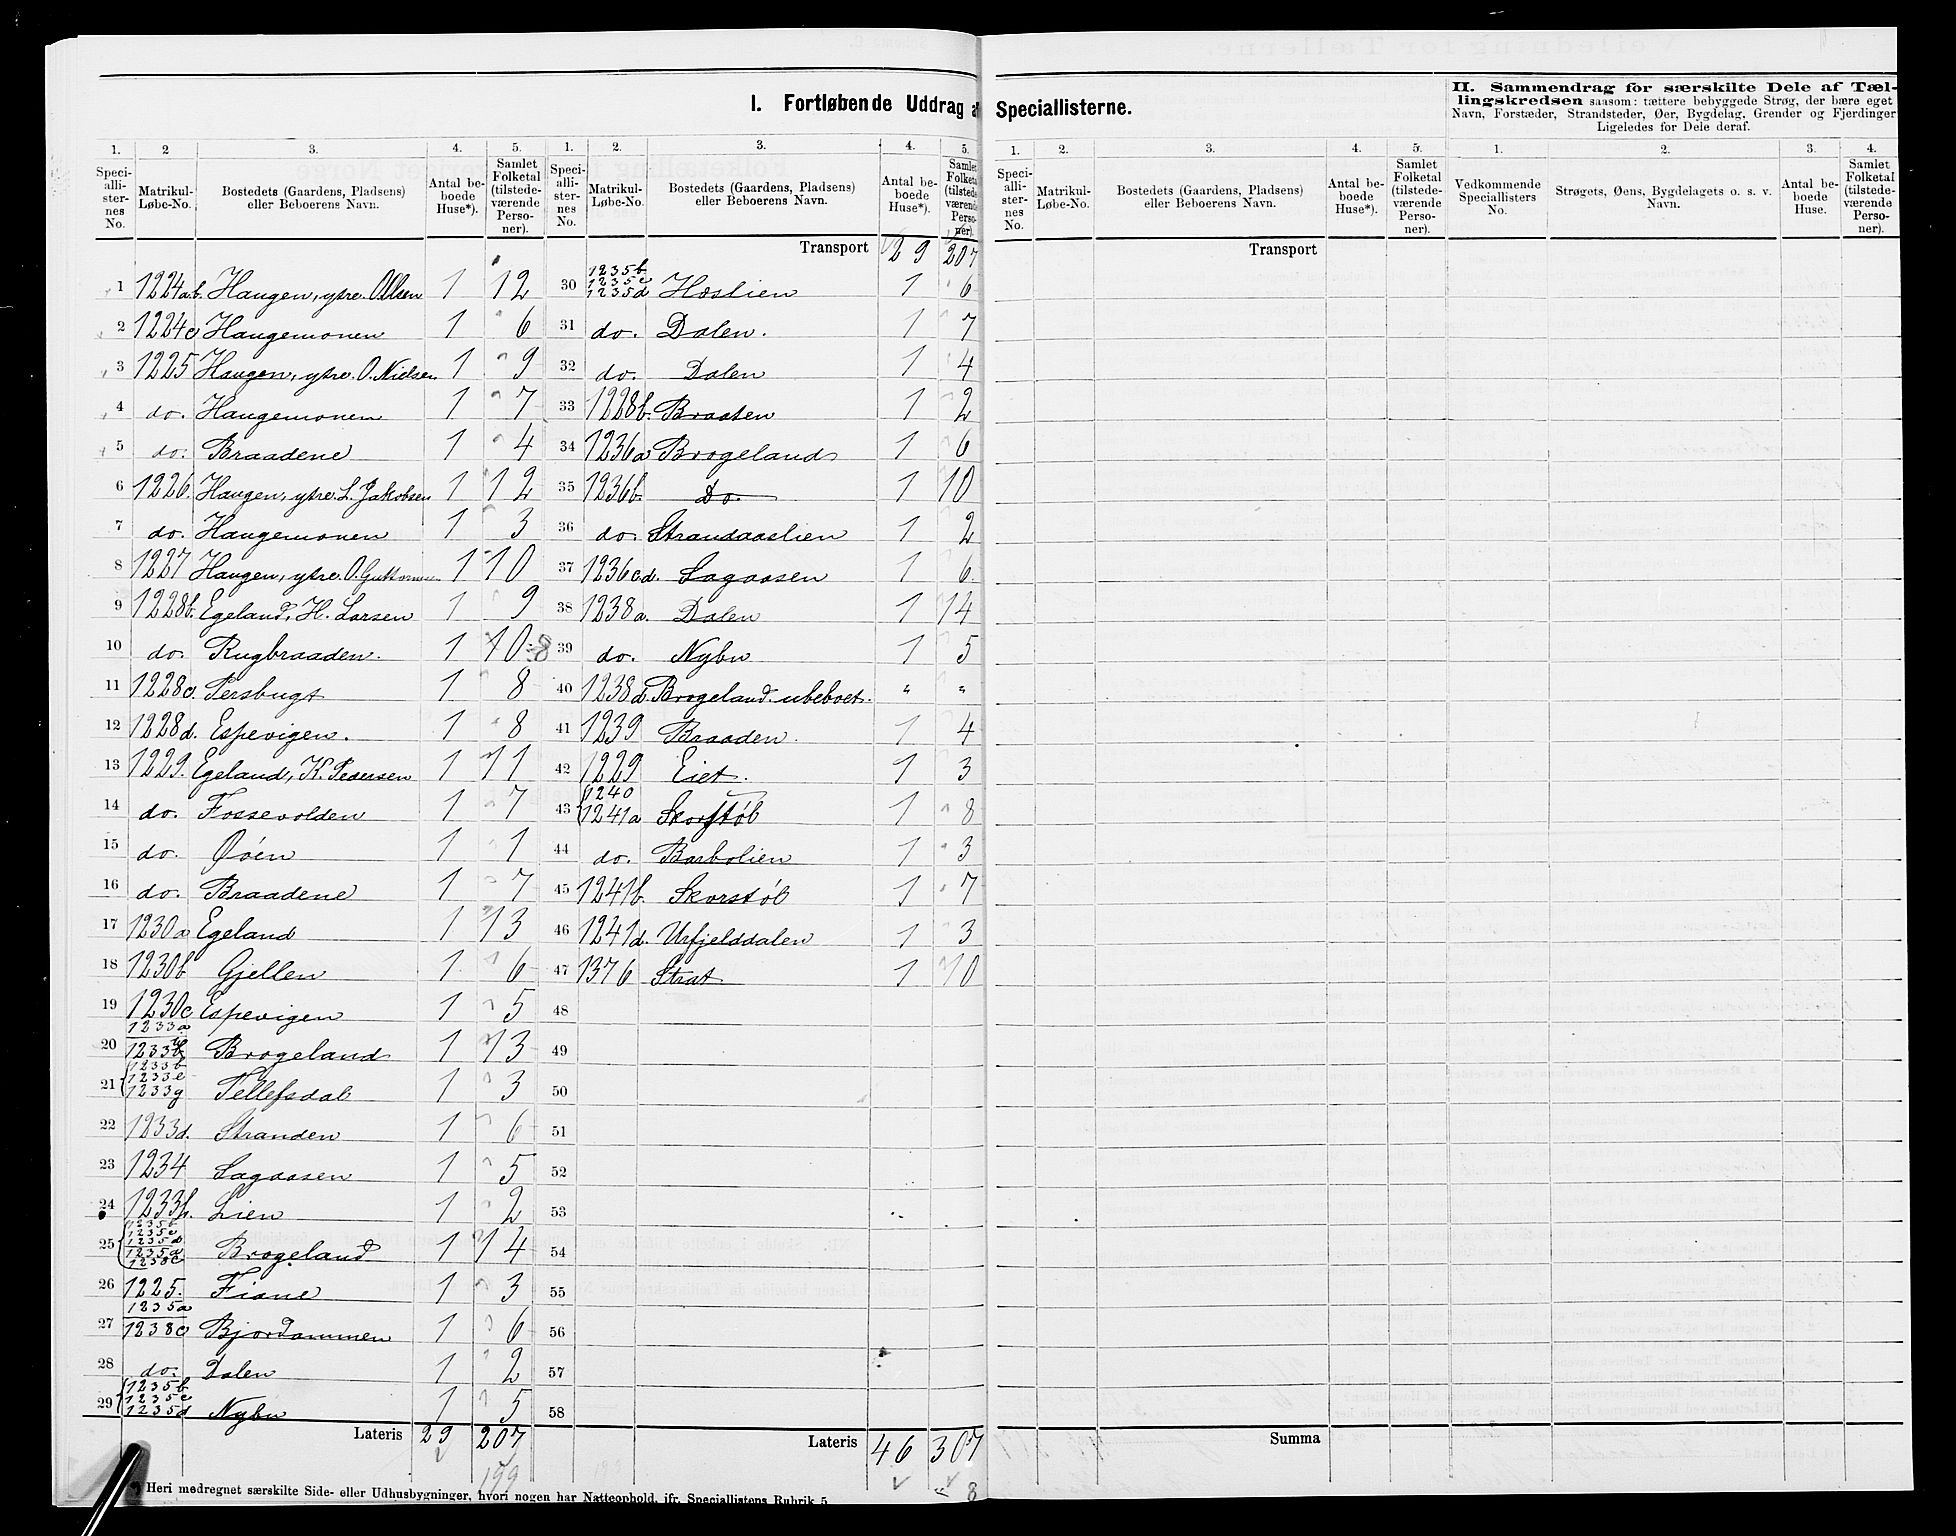 I. Fortløbende Uddrag a Speciallisterne.
II. Sammendrag for særskilte Dele af Tæl-
lingskredsen saasom: tættere bebyggede Strøg, der bære eget
Navn, Forstæder, Strandsteder, Øer, Bygdelag, Grender og Fjerdinger
Ligeledes for Dele deraf.
1. 2 3. 4. 5. 1. 2. 3. 4. 5. 1. 2. 3. 4. 5. 1. 2. 3. 4.
Speci-alli-ster-nes No. Matrikul-Løbe-No. Bostedets (Gaardens, Pladsens) eller Beboerens Navn. Antal be-boede Huse*). Samlet Folketal (tilstede-værende Perso-ner).
Speci-alli-ster-nes No. Matrikul-Løbe-No. Bostedets (Gaardens, Pladsens) eller Beboerens Navn. Antal be-boede Huse*). Samlet Folketal (tilstede-værende Perso-ner).
Speci-alli-ster-nes No. Matrikul-Løbe-No. Bostedets (Gaardens, Pladsens) eller Beboerens Navn. Antal be-boede Huse*). Samlet Folketal (tilstede-værende Perso-ner).
Vedkommende Speciallisters No. Strøgets, Øens, Bygdelagets o. s. v. Navn. Antal be-boede Huse. Samlet Folketal (tilstede-værende Perso-ner).
1 1224a.b. Haugen, ytre. O. Olsen 1 12
2 1224c Haugemonen 1 6
3 1225 Haugen, ytre. O. Nielsen 1 9
4 do. Haugemonen 1 7
5 do. Braadene 1 4
6 1226. Haugen, ytre. L. Jakobsen 1 12
7 do. Haugemonen 1 3
8 1227 Haugen, ytre. O. Guttormsen 1 10
9 1228b. Egeland, H. Larsen 1 9
10 do. Rugbraaden. 1 10 8
11 1228c. Persbugt 1 8
12 1228d. Espevigen. 1 8
13 1229. Egeland, K. Pedersen 1 11
14 do. Fossevolden 1 7
15 do. Øóen 1 1
16 do. Braadene 1 7
17 1230a Egeland 1 13
18 1230b Gjellen 1 6
19 1230c Espevigen 1 5
20 1233a 1233b Brogeland 1 13
21 1233b 1233e 1233g Tellefsdal 1 3
22 1233d. Stranden 1 6
23 1234 Sagaasen 1 5
24 1233h. Lien 1 2
25 1235b 1235c 1235d 1235d 1238c Brogeland 1 14
26 1225. Fiane 1 3
27 1235a 1238c Bjordammen 1 6
28 do. Dalen 1 2
29 1235b 1235c 1235d Nybu 1 5
Lateris 29 207
199
Transport 29 207
30 1235b 1235c 1235d Hæslien 1 6
31 do. Dalen. 1 7
32 do. Dalen 1 4
33 1228b. Braaten 1 2
34 1236a Brogeland 1 6
35 1236b. Do. 1 10
36 do. Strandaaslien 1 2
37 1236c.d. Sagaasen 1 6
38 1238a. Dalen 1 14
39 do. Nybu 1 5
40 1238d. Brogeland. ubeboet. " "
41 1239 Braaden. 1 4
42 1229 Eiet. 1 3
43 1240 1241a Skorstøl 1 8
44 do. Barbolien 1 3
45 1241b. Skorstøl 1 7
46 1241d. Urfjelddalen 1 3
47 1376 Strat 1 10
48
49
50
51
52
53
54
55
56
57
58
Lateris 46 307
8
Transport
Summa
*) Heri medregnet særskilte Side- eller Udhusbygninger, hvori nogen har Natteophold, jfr. Speciallistens Rubrik 5.